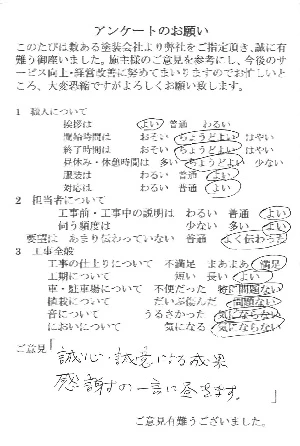 アンケートのお願い
このたびは数ある塗装会社より弊社をご指定頂き、誠に有
難う御座いました。施主様のご意見を参考にし、今後のサ
ービス向上・経営改善に努めてまいりますのでお忙しいと
ころ、大変恐縮ですがよろしくお願い致します。
1 職人について
挨拶は よい 普通 わるい
開始時間は おそい ちょうどよい はやい
終了時間は おそい ちょうどよい はやい
昼休み・休憩時間は 多い ちょうどよい 少ない
服装は わるい 普通 よい
対応は わるい 普通 よい
2 担当者について
工事前・工事中の説明は わるい 普通 よい
伺う頻度は 少ない 多い よい
要望は あまり伝わっていない 普通 よく伝わった
3 工事全般
工事の仕上りについて 不満足 まあまあ 満足
工期について 短い 長い よい
車・駐車場について 不便だった 特に問題ない
植栽について だいぶ傷んだ 問題ない
音について うるさかった 気にならない
においについて 気になる 気にならない
ご意見「
誠心・誠意による成果
感謝の一言に尽きます。
」
ご意見有難うございました。